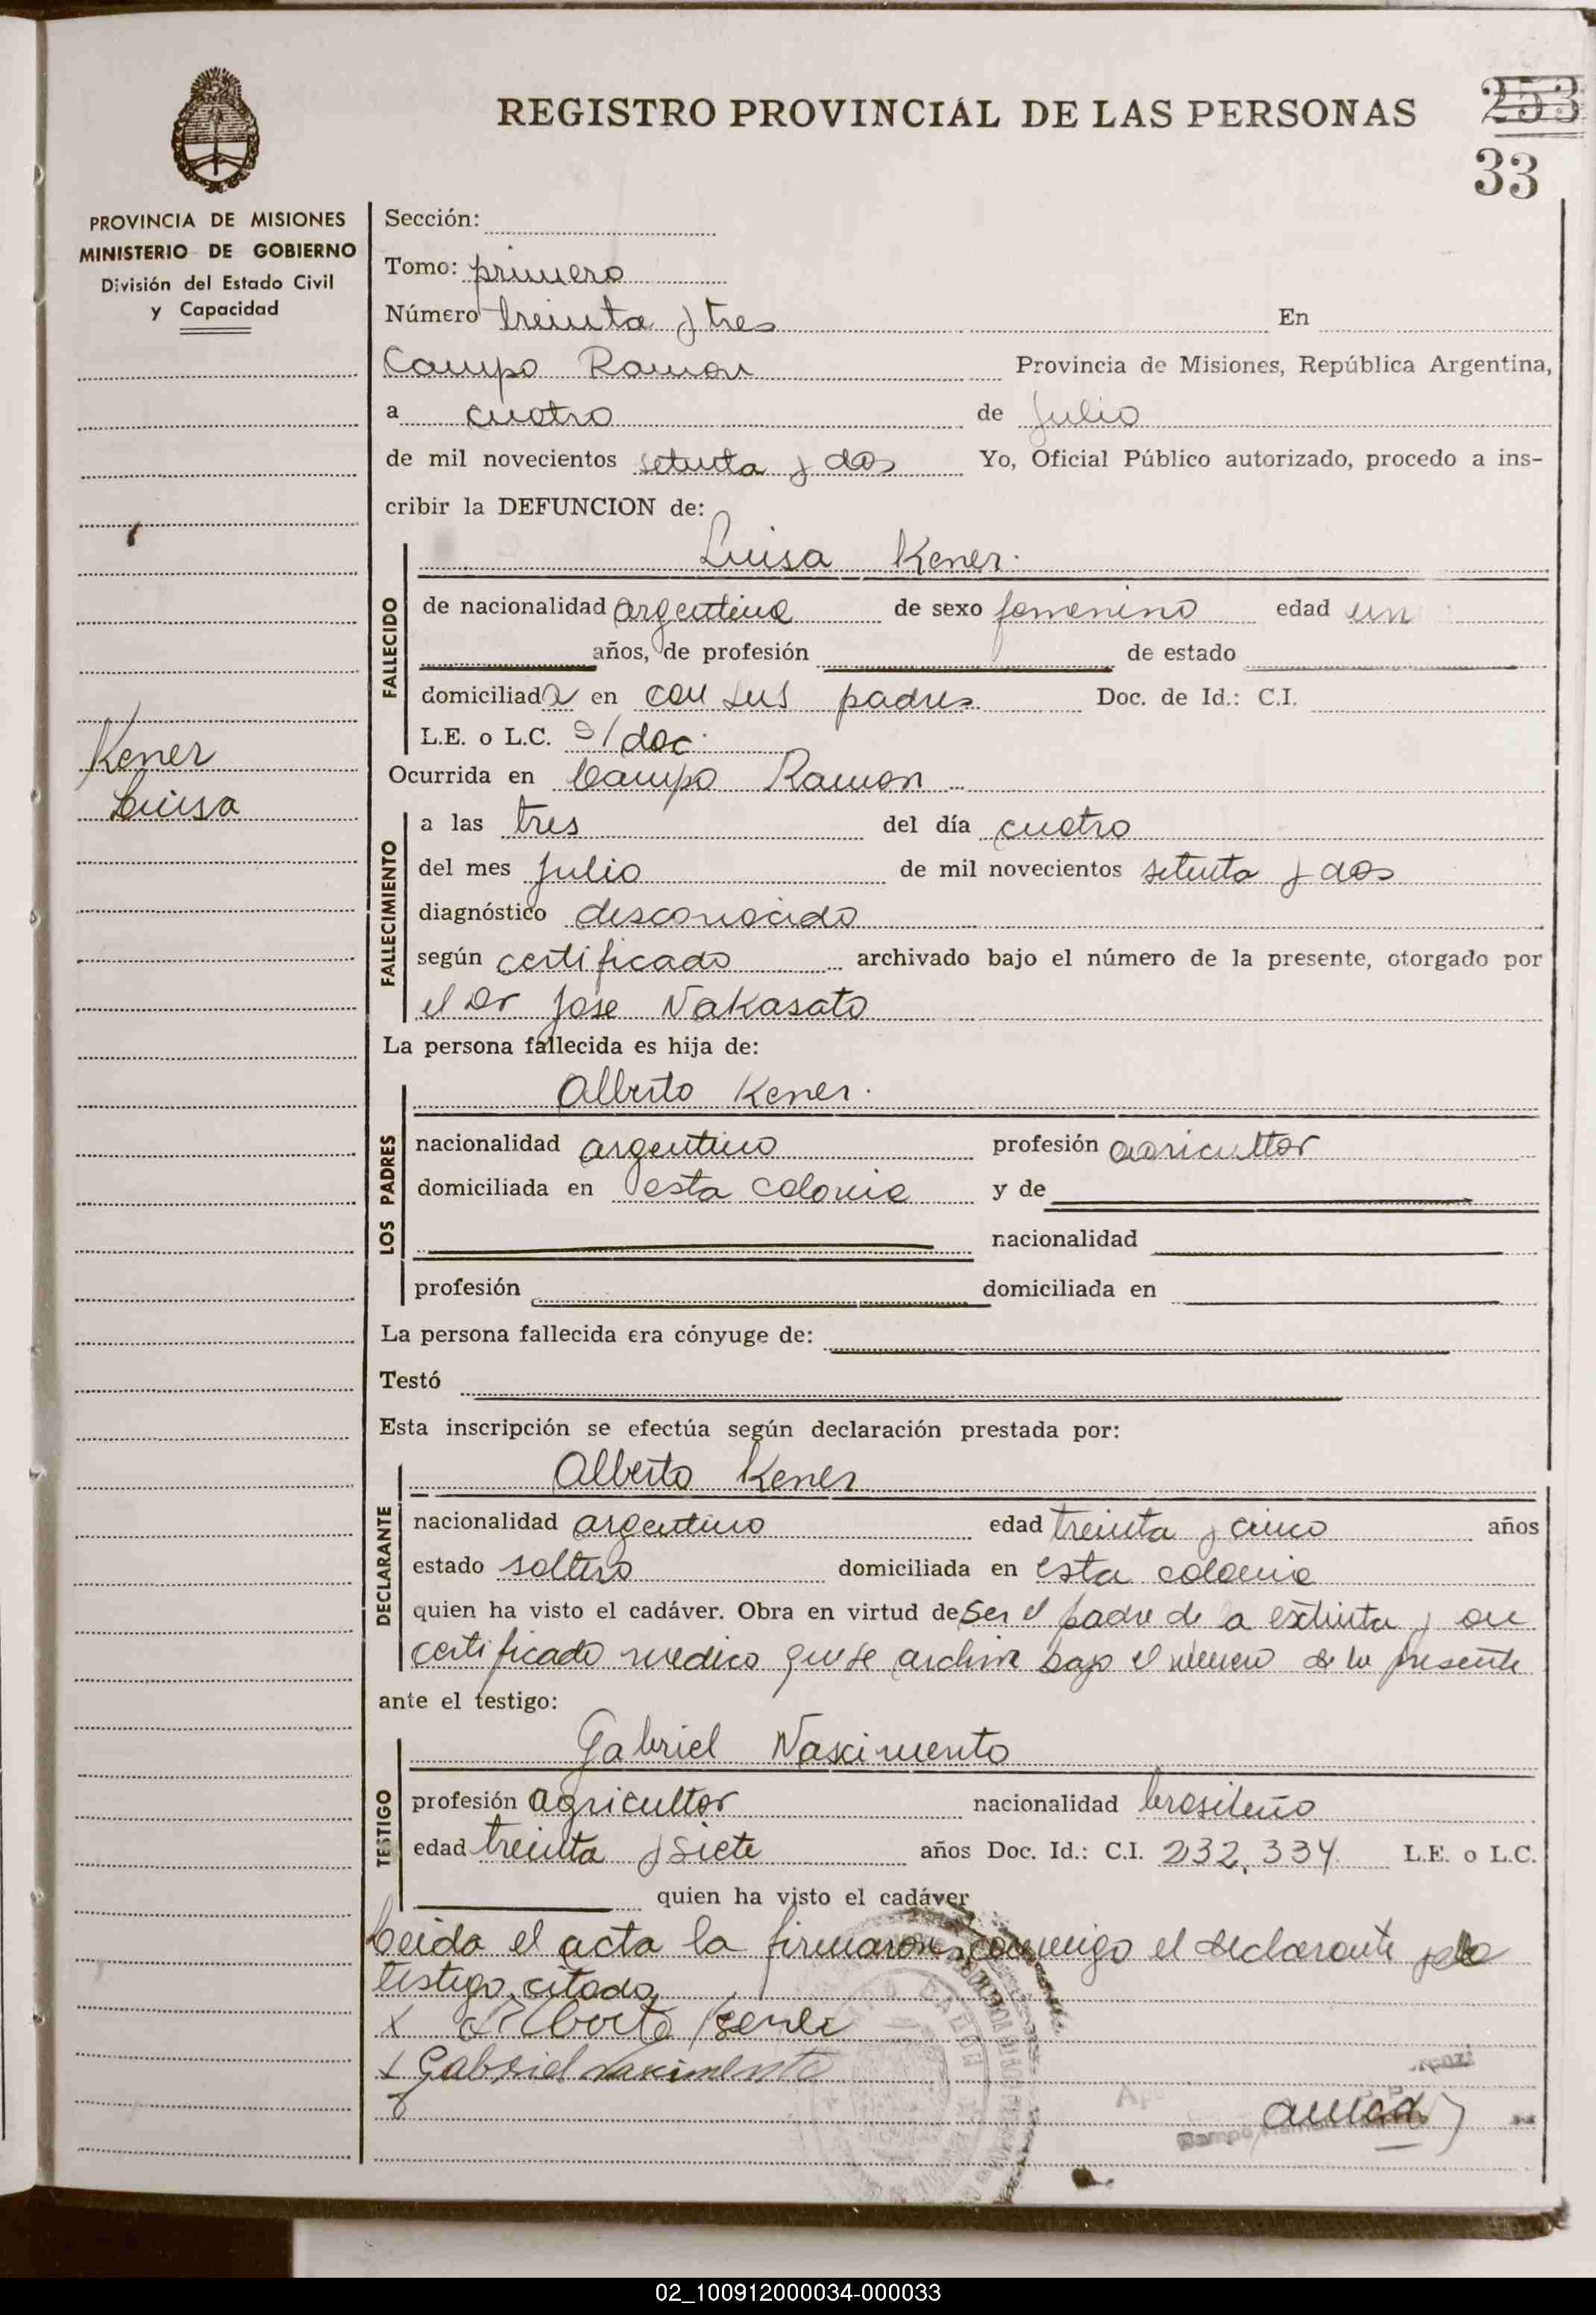 REGISTRO PROVINCIAL DE LAS PERSONAS
253
33
PROVINCIA DE MISIONES
MINISTERIO DE GOBIERNO
División del Estado Civil
y Capacidad
Kener
Luisa
Sección:
Tomo: primero
Número treinta y tres En
Campo Ramon Provincia de Misiones, República Argentina,
a cuatro de Julio
de mil novecientos setenta y dos Yo, Oficial Público autorizado, procedo a ins-
cribir la DEFUNCION de:
FALLECIDO
Luisa Kener.
de nacionalidad argentina de sexo femenino edad un
años, de profesión de estado
domiciliada en con sus padres Doc. de Id.: C.I.
L.E. o L.C. s/doc.
Ocurrida en Campo Ramon
FALLECIMIENTO
a las tres del día cuatro
del mes Julio de mil novecientos setenta y dos
diagnóstico desconocido
según certificado archivado bajo el número de la presente, otorgado por
el Dr Jose Nakasato
La persona fallecida es hija de:
LOS PADRES
Alberto Kener.
nacionalidad argentino profesión agricultor
domiciliada en esta colonia y de
nacionalidad
profesión domiciliada en
La persona fallecida era cónyuge de:
Testó
Esta inscripción se efectúa según declaración prestada por:
DECLARANTE
Alberto Kener
nacionalidad argentino edad treinta y cinco años
estado soltero domiciliada en esta colonia
quien ha visto el cadáver. Obra en virtud de ser el padre de la extinta y
certificado medico que se archiva bajo el número de la presente
ante el testigo:
TESTIGO
Gabriel Nascimento
profesión agricultor nacionalidad brasileño
edad treinta y siete años Doc. Id.: C.I. 232,334 L.E. o L.C.
quien ha visto el cadáver
Leida el acta la firmaron conmigo el declarante y el
testigo citado
x Alberto Kener
x Gabriel nascimento
02_100912000034-000033